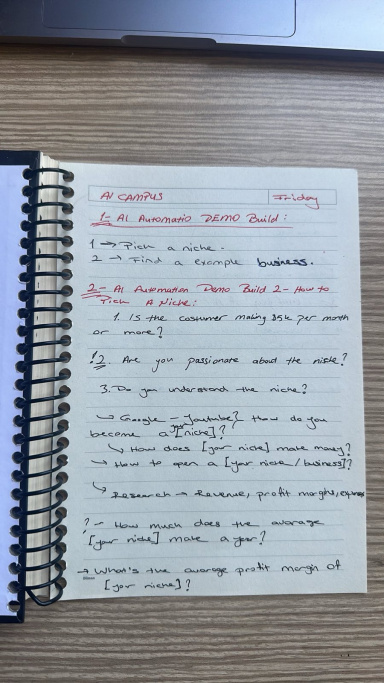 AI CAMPUS Friday
1- AI Automatio DEMO Build :
1 → Pick a niche.
2 → Find a example business.
2- AI Automation Demo Build 2- How to
Pick A Niche:
1. Is the costumer making $5k per month
or more?
!2. Are you passionate about the niche?
3. Do you understand the niche?
↳ Google - Youtube? How do you
become a [your niche]?
↳ How does [your niche] make money?
→ How to open a [your niche / business]?
↳ Research → Revenue, profit margins,
? - How much does the avarage
[your niche] make a year?
→ What's the avarage profit margin of
[your niche]?